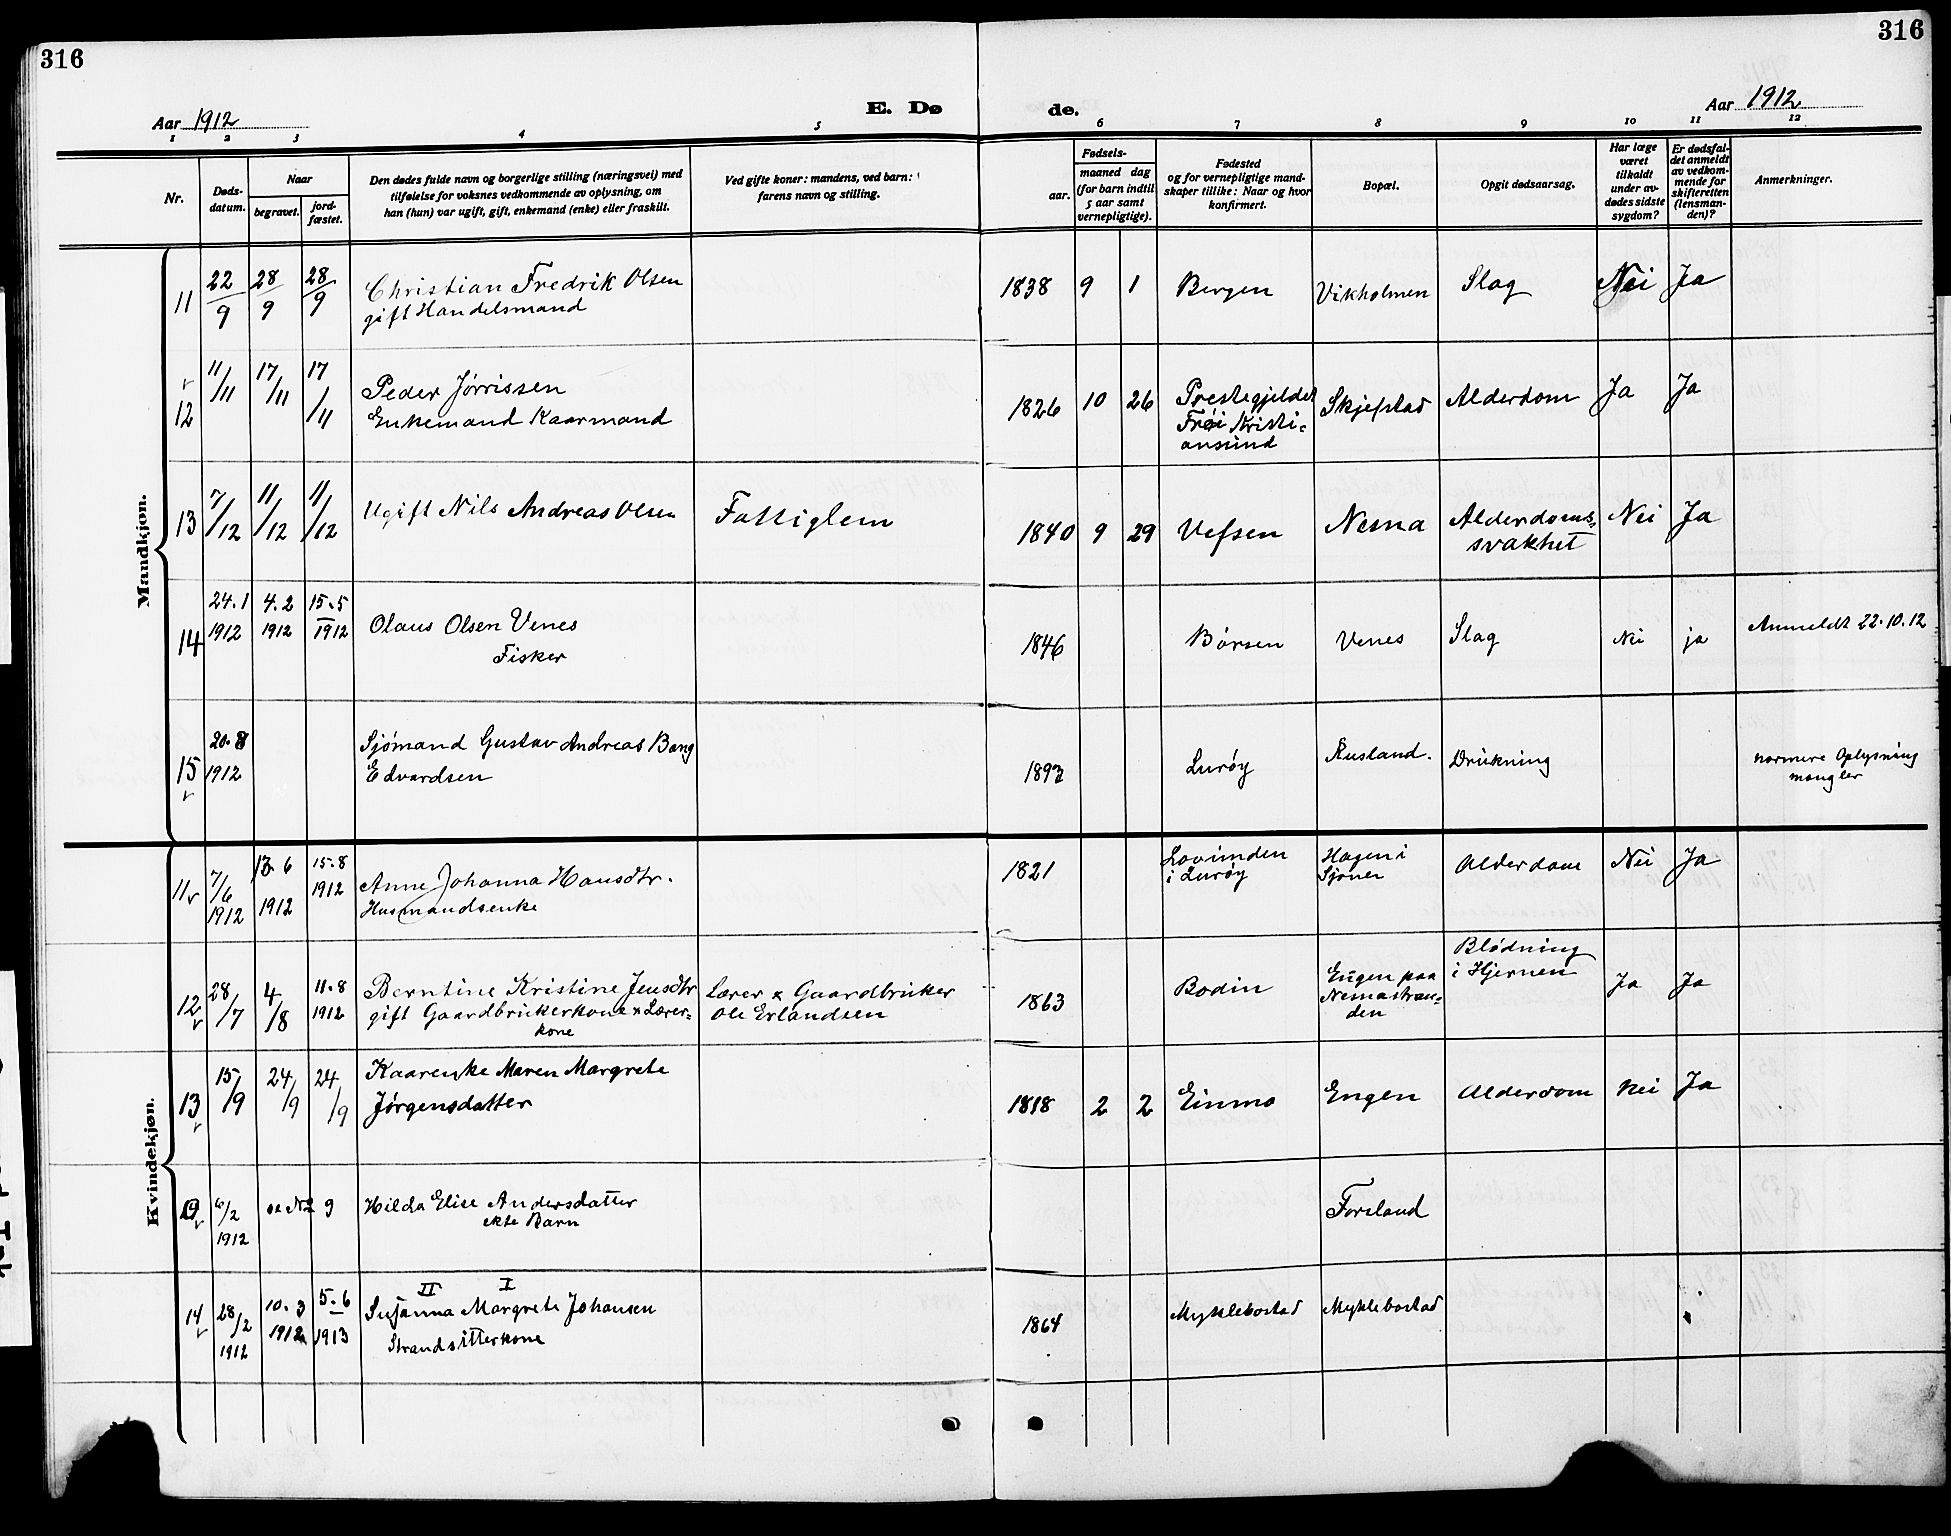 316
316
Aar 1912
E. Dø
de.
Aar 1912
1 2 3 4 5 6 7 8 9 10 11 12
Nr.
Døds-
datum.
Naar
begravet.
jord-
fæstet.
Den dødes fulde navn og borgerlige stilling (næringsvei) med
tilføielse for voksnes vedkommende av oplysning, om
han (hun) var ugift, gift, enkemand (enke) eller fraskilt.
Ved gifte koner: mandens, ved barn:
farens navn og stilling.
Fødsels-
aar. maaned dag
(for barn indtil
5 aar samt
vernepligtige).
Fødested
og for vernepligtige mand-
skaper tillike: Naar og hvor
konfirmert.
Bopæl.
Opgit dødsaarsag.
Har læge
været
tilkaldt
under av-
dødes sidste
sygdom?
Er dødsfal-
det anmeldt
av vedkom-
mende for
skifteretten
(lensman-
den)?
Anmerkninger.
Mandkjøn.
11 22/9 28/9 28/9 Christian Fredrik Olsen
gift Handelsmand
1838 9 1 Bergen Vikholmen Slag Nei Ja
12 11/11 17/11 17/11 Peder Jørrissen
Enkemand Kaarmand
1826 10 26 Prestegjeldet
Frøi Kristi-
ansund
Skjefstad Alderdom Ja Ja
13 7/12 11/12 11/12 Ugift Nils Andreas Olsen Fattiglem
1840 9 29 Vefsen Nesna Alderdoms-
svakhet
Nei Ja
14 24.1
1912
4.2
1912
15.5
1912
Olaus Olsen Venes
Fisker
1846 Børsen Venes Slag Nei ja Anmeldt 22.10.12
15 20.8
1912
Sjømand Gustav Andreas Bang
Edvardsen
1892 Lurøy Rusland. Drukning
nærmere Oplysning
mangler
Kvindekjøn.
11 7/6
1912
13.6
1912
15.8
1912
Anne Johanna Hansdtr.
Husmandsenke
1821 Lovunden
i Lurøy
Hagen i
Sjonen
Alderdom Nei Ja
12 28/7 4/8 11.8
1912
Berntine Kristine Jensdtr
gift Gaardbrukerkone & Lærer-
kone
Lærer & Gaardbruker
Ole Erlandsen
1863 Bodin Engen paa
Nesnastran-
den
Blødning
i Hjernen
Ja Ja
13 15/9 24/9 24/9 Kaarenke Maren Margrete
Jørgensdatter
1818 2 2 Einmo Engen Alderdom Nei Ja
6/2
1912
se No 9 Hilda Elise Andersdatter
ekte Barn
Forsland
14 28/2
1912
10.3
1912
5.6
1913
II I
Susanna Margrete Johansen
Strandsitterkone
1864 Myklebostad Myklebostad